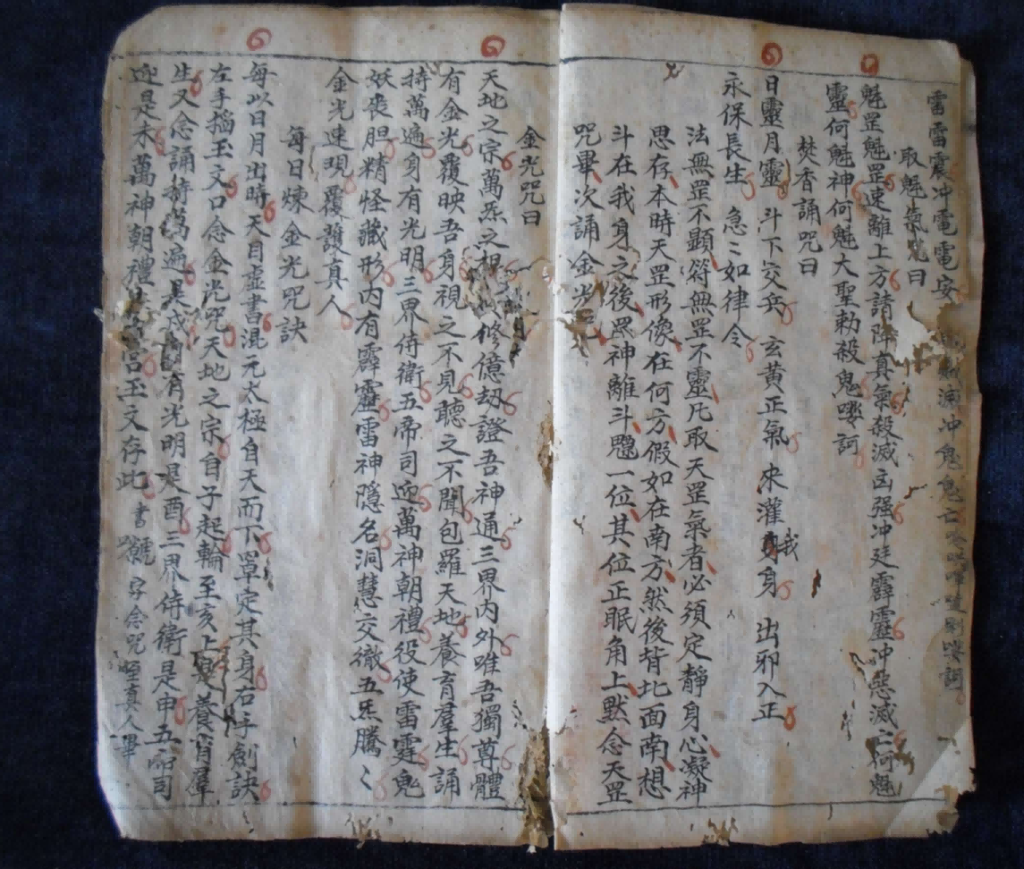 雷雷震冲電電安滅冲鬼鬼亡
取魁炁咒曰
魁罡魁罡速離上方請降真氣殺滅凶强冲廷霹靈冲惡滅亡何魁
靈何魁神何魁大聖勑殺鬼嘮訶
焚香誦咒曰
日靈月靈 斗下交兵 玄黃正氣 來灌我身 出邪入正
永保長生 急〻如律令
法無罡不顯符無罡不靈凡取天罡氣者必須定靜身心凝神
思存本時天罡形像在何方假如在南方然後背北面南想
斗在我身之後罡神離斗魁一位其位正眠角上默念天罡
咒畢次誦金光咒
金光咒曰
天地之宗萬炁之根修億劫證吾神通三界内外唯吾獨尊體
有金光覆映吾身視之不見聽之不聞包羅天地養育羣生誦
持萬遍身有光明三界侍衛五帝司迎萬神朝禮役使雷霆鬼
妖喪胆精怪藏形内有霹靂雷神隱名洞慧交徹五炁騰〻
金光速現覆護真人
每日煉金光咒訣
每以日月出時天目虛書混元太極自天而下罩定其身右手劍訣
左手掐玉文口念金光咒天地之宗自子起輪至亥上是養育羣
生又念誦持萬遍是戌有光明是酉三界侍衛是申五帝司
迎是未萬神朝禮玉文存此書號字念咒至真人畢